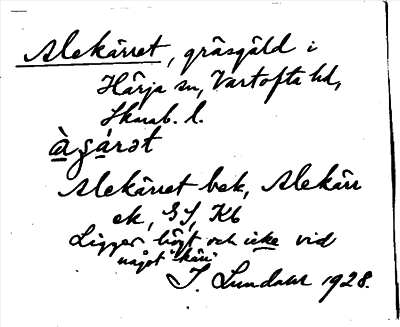 Alekärret, gräsgäld i
Härja sn, Vartofta hd,
Skarab. l.
àʒárət
Alekärret bek, Alekärr
ek, GS, Kb
Ligger högt och icke vid
något "kärr"
J. Lundahl 1928.